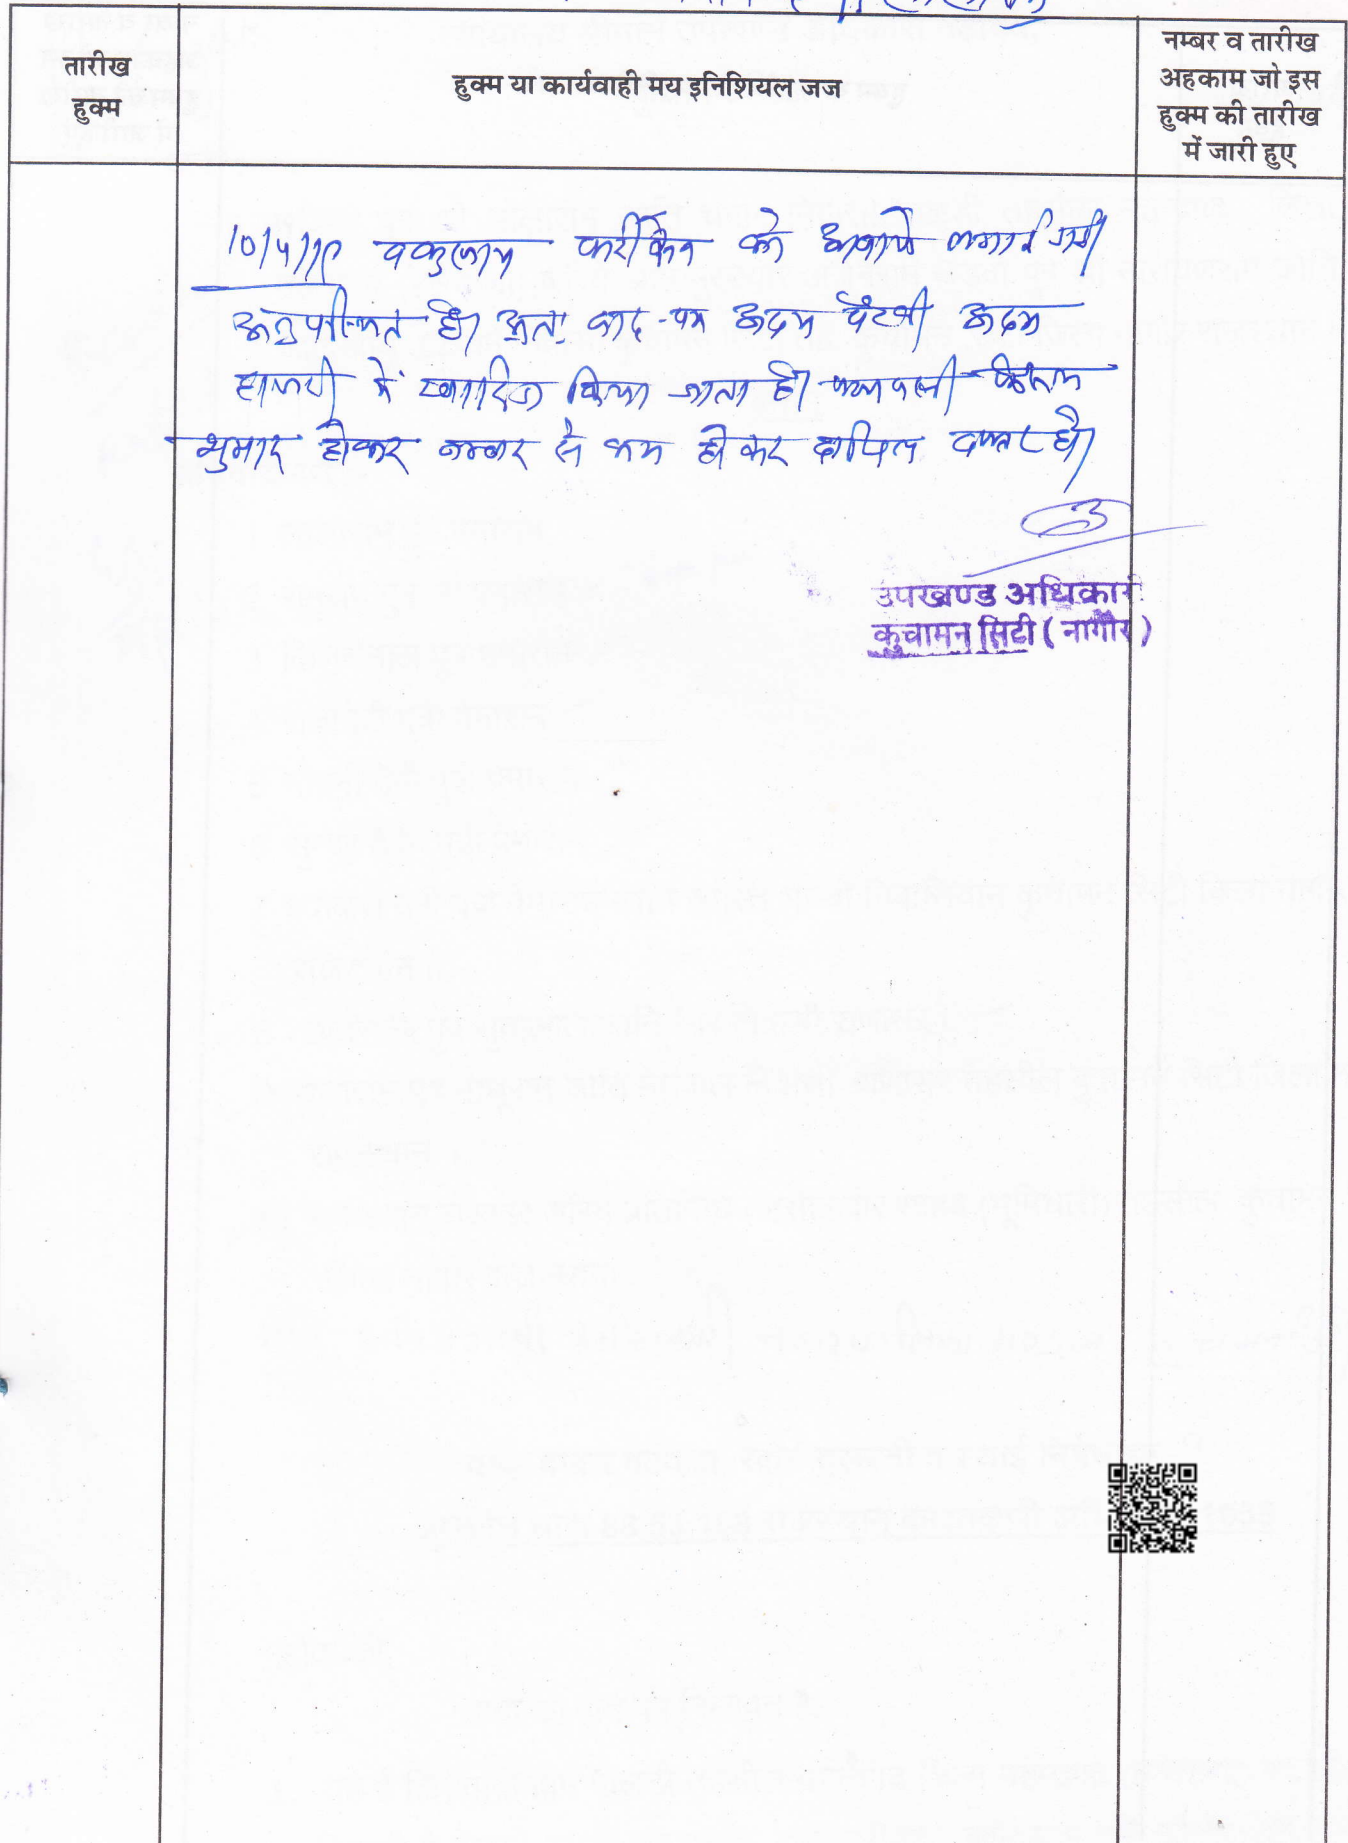 तारीख
हुक्म
हुक्म या कार्यवाही मय इनिशियल जज
नम्बर व तारीख
अहकाम जो इस
हुक्म की तारीख
में जारी हुए
वकुलाय फरीकेन को आवाजे लगाई गयी
अनुपस्थित है। अतः वाद-पत्र अदम पैरवी अदम
हाजरी में खारिज किया जाता है। पत्रावली फैसल
शुमार होकर नम्बर से कम होकर दाखिल दफ्तर हो।
उपखण्ड अधिकारी
कुचामन सिटी (नागौर)